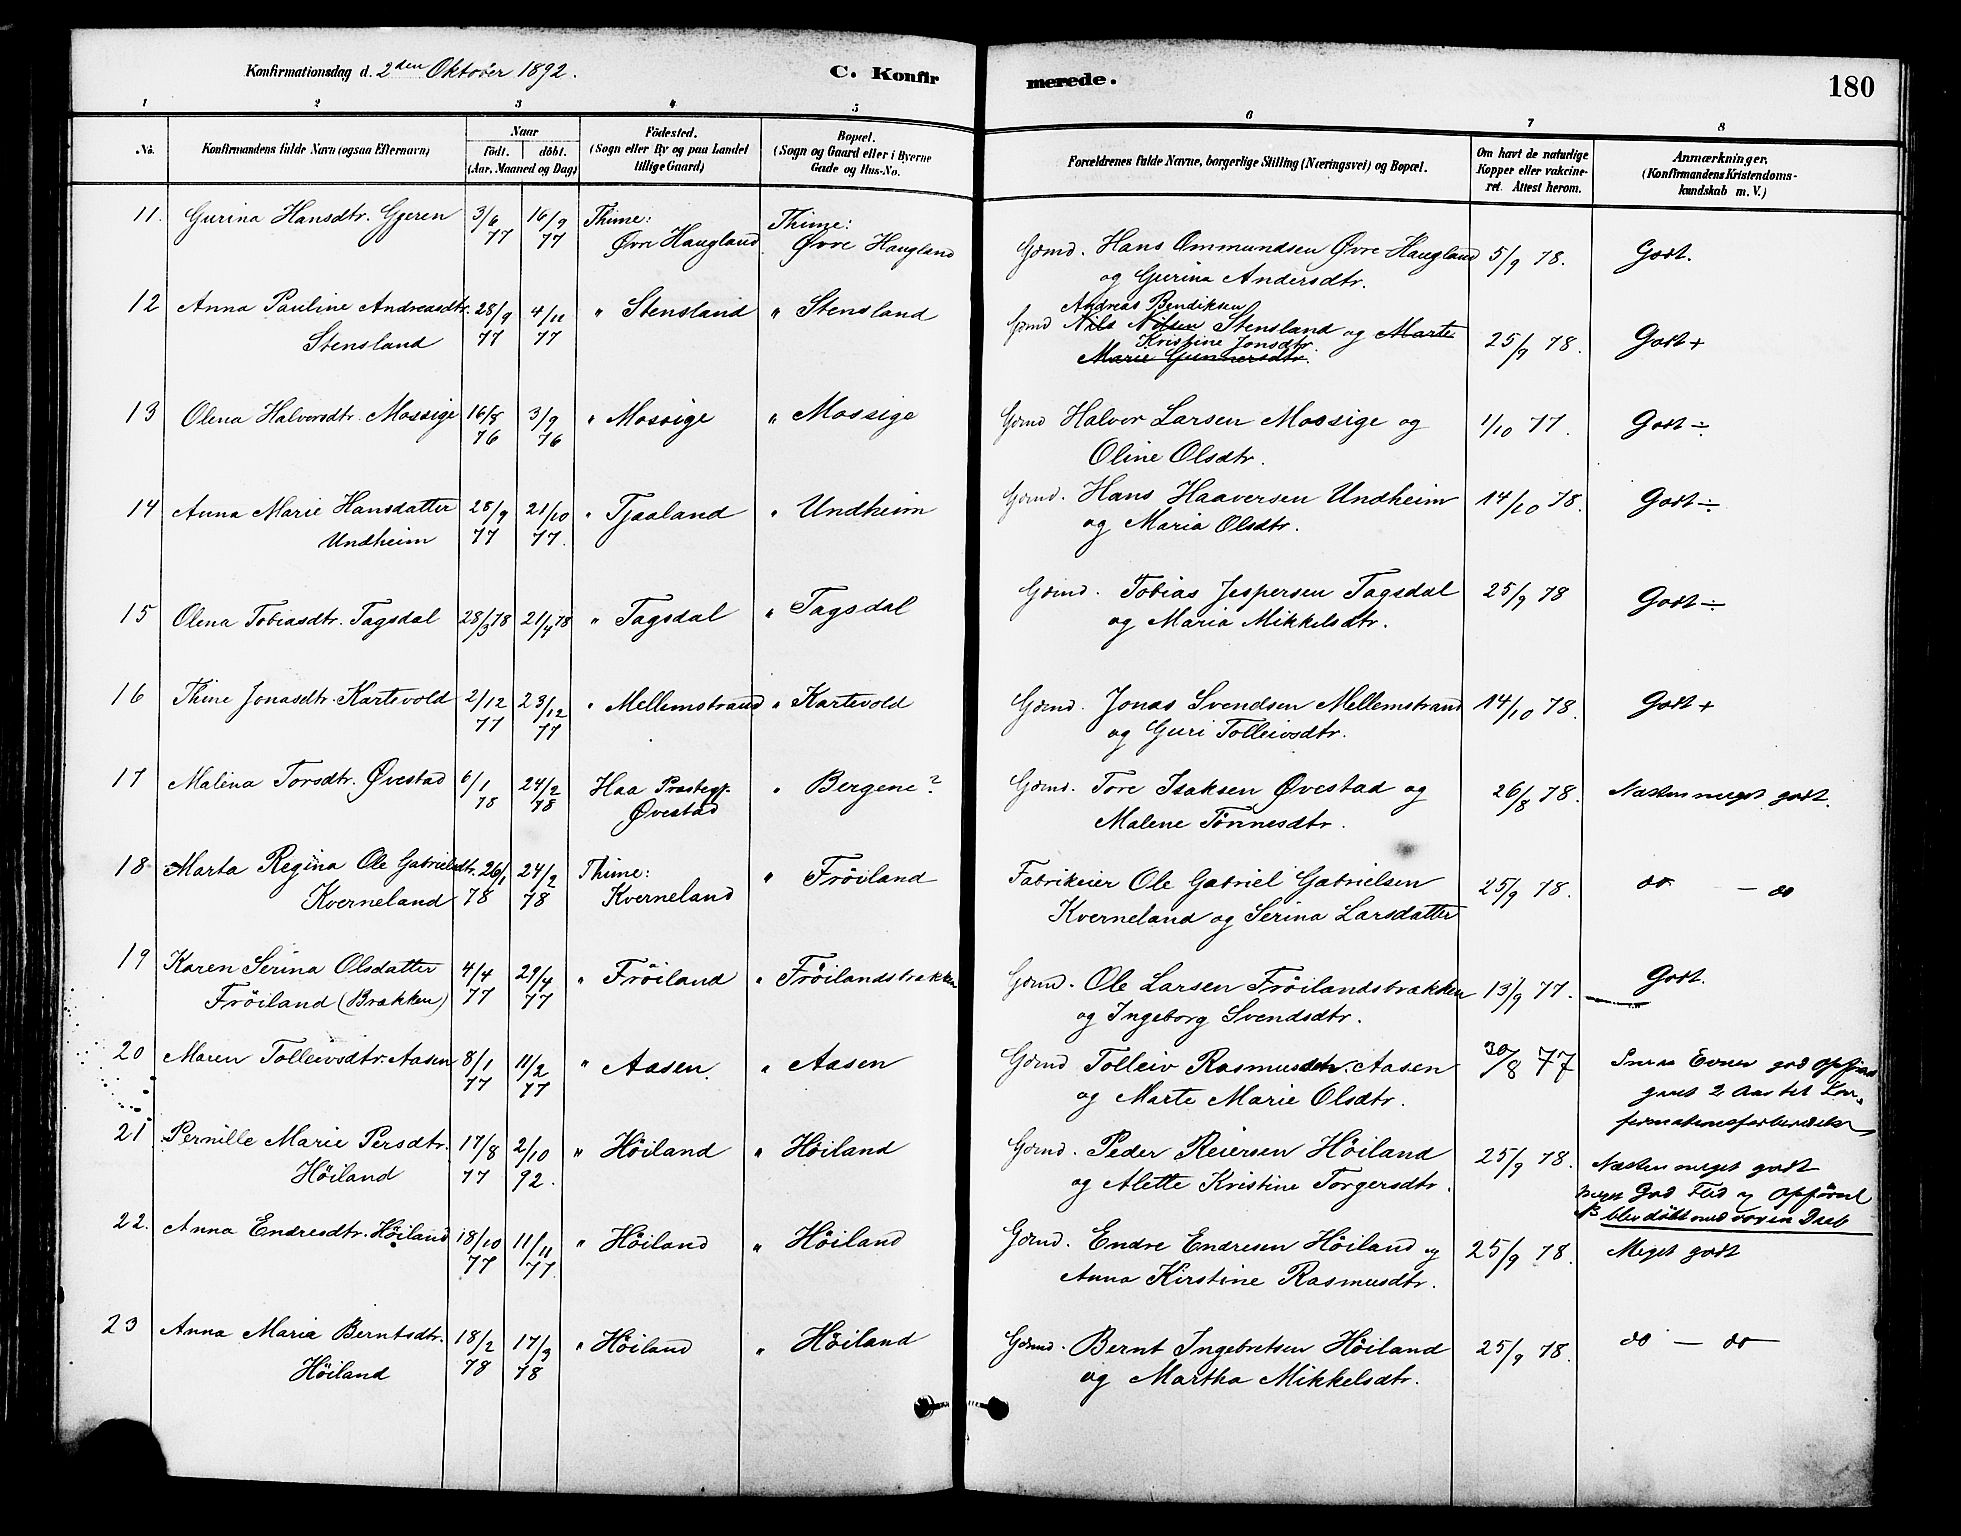 Konfirmationsdag d. 2den Oktober 1892.
C. Konfirmerede.
180
1 2 3 4 5 6 7 8
No.
Konfirmandens fulde Navn (ogsaa Efternavn)
Naar
født. døbt.
(Aar, Maaned og Dag)
Fødested.
(Sogn eller By og paa Landet
tillige Gaard)
Bopæl.
(Sogn og Gaard eller i Byerne
Gade og Hus-No.
Forældrenes fulde Navne, borgerlige Stilling (Næringsvei) og Bopæl.
Om havt de naturlige
Kopper eller vakcine-
ret. Attest herom.
Anmærkninger.
(Konfirmandens Kristendoms-
kundskab m. V.)
11. Gurina Hansdtr. Gjeren 3/6 77 16/9 77 Thime: Øvre Haugland Thime: Øvre Haugland Gbmd. Hans Ommundsen Øvre Haugland 5/9 78. Godt.
og Gurina Andersdtr.
12 Anna Pauline Andreasdtr. 28/9 77 4/11 77 " Stensland " Stensland Andreas Bendiksen
Stensland Gbmd Nils Nilsen Stensland og Marte 25/9 78. Godt +
Kristine Jonsdtr.
Marie Gunnersdtr.
13 Olena Halversdtr. Mossige 16/8 76 3/9 76 " Mossige " Mossige Gbmd Halvor Larsen Mossige og 1/10 77. Godt ÷
Oline Olsdtr.
14 Anna Marie Hansdatter 28/9 77 21/10 77. " Tjaaland " Undheim Gbmd. Hans Haaversen Undheim 14/10 78. Godt ÷
Undheim og Maria Olsdtr.
15 Olena Tobiasdtr. Tagsdal 28/3 78 21/4 78 " Tagsdal " Tagsdal Gbmd. Tobias Jespersen Tagsdal 25/9 78 Godt ÷
og Maria Mikkelsdtr.
16 Thine Jonasdtr. Kartevold 2/12 77 23/12 77 " Mellemstrand " Kartevold Gbmd. Jonas Svendsen Mellemstrand 14/10 78. Godt +
og Guri Tolleivsdtr.
17 Malena Torsdtr. Øvestad 6/1 78 24/2 78 Haa Prestegj. Øvestad " Bergene? Gbmd. Tore Isaksen Øvestad og 26/8 78. Næsten meget godt.
Malene Tönnesdtr.
18 Marta Regina Ole Gabrielsdtr. 26/1 78 24/2 78 Thime: Kverneland " Fröiland Fabrikeier Ole Gabriel Gabrielsen 25/9 78. do — do
Kverneland Kverneland og Serina Larsdatter
19 Karen Serina Olsdatter 4/4 77 29/4 77 " Fröiland " Fröilandsbrækken Gbmd. Ole Larsen Fröilandsbrækken 13/9 77. Godt.
Fröiland (Brækken) og Ingeborg Svendsdtr.
20 Maren Tolleivsdtr. Aasen 8/1 77 11/2 77 " Aasen. " Aasen Gbmd Tolleiv Rasmussen Aasen 30/8 77 Smaa Evner god Opförsel
og Marte Marie Olsdtr. gaaet 2 Aar til Kon-
firmationsforberedelse
21 Pernille Marie Persdtr. 17/8 77 2/10 92. " Höiland " Höiland Gbmd. Peder Reiersen Höiland 25/9 78. Næsten meget godt
Höiland og Alette Kristine Torgersdtr. meget God Flid og Opförsel
blev döbt med voxen Daab
22. Anna Endresdtr. Höiland 18/10 77 11/11 77. " Höiland " Höiland Gbmd. Endre Endresen Höiland og 25/9 78. Meget godt
Anna Kirstine Rasmusdtr.
23 Anna Maria Berntsdtr. 18/2 78 17/3 78 " Höiland " Höiland Gbmd. Bernt Ingebretsen Höiland 25/9 78. do — do
Höiland og Martha Mikkelsdtr.